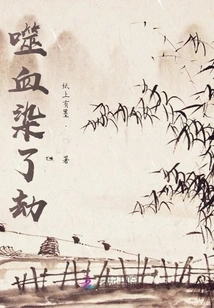 噬血染了劫
纸上有墨·著